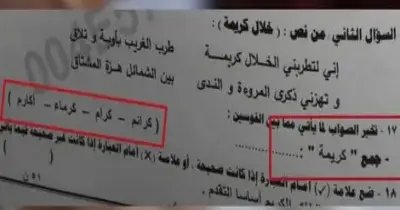 السؤال الثاني : من نص : ( خلال كريمة ) :
إني لتطربني الخلال كريمة طرب الغريب بأوبة و تلاق
و تهزني ذكرى المروءة و الندى بين الشمائل هزة المشتاق
١٧ - تخير الصواب لما يأتي مما بين القوسين :
- جمع " كريمة " : ............ ( كرائم – كرام – كرماء – أكارم )
١٨ - ضع علامة (✓) أمام العبارة إذا كانت صحيحة ، أو علامة (×) أمام العبارة إذا كانت غير صحيحة فيما يأتي
الكريم أساسا التقدم .